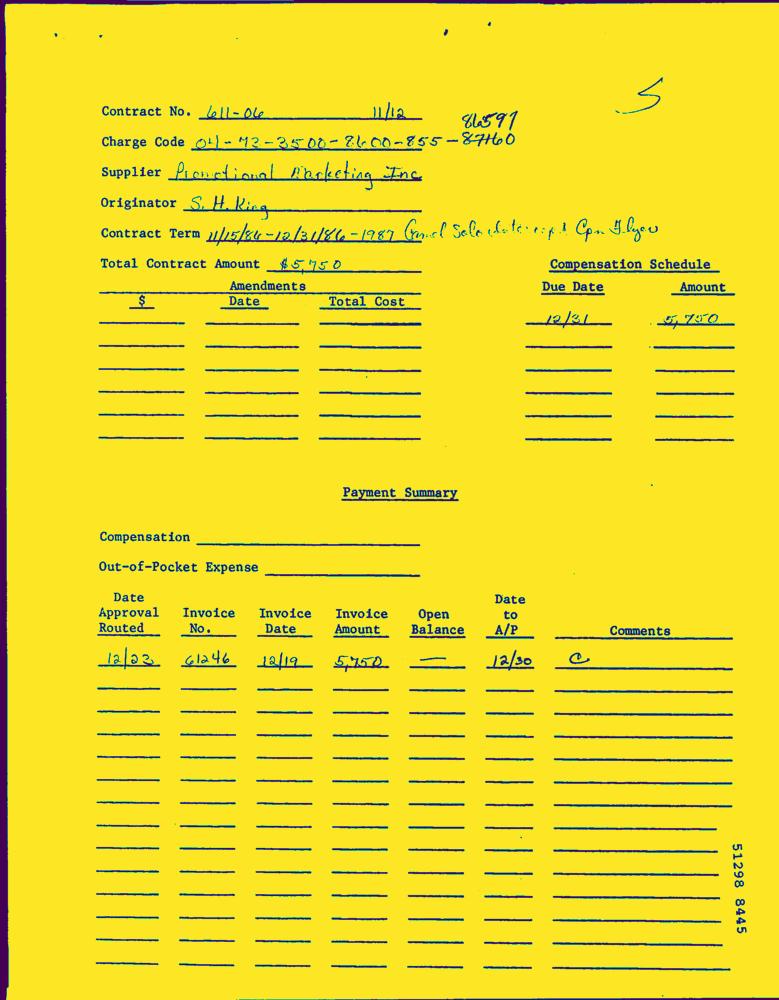 Contract No. 611-06 11/12
86597
Charge Code 04-72-3500-2600-855-87460
Supplier Promotional Marketing Inc
Originator S. H. King
Contract Term 11/15/86-12/31/86-1987 Camel Cpn Flyer
Total Contract Amount $5,750
Compensation Schedule
Amendments
Due Date Amount
$ Date Total Cost
12/31 5,750
Payment Summary
Compensation
Out-of-Pocket Expense
Date Approval Routed Invoice No. Invoice Date Invoice Amount Open Balance Date to A/P Comments
12/23 61246 12/19 5,750 — 12/30 C
51298 8445